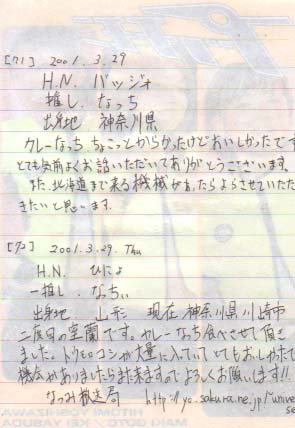 [71] 2001.3.29
H.N. バッジォ
推し. なっち
出身地 神奈川県
カレーなっち、ちょこっとからかったけどおいしかったです
とても気前よくお話いただいてありがとうございます。
また、北海道まで来る機械があったらよらさせていただ
きたいと思います。
[72] 2001.3.29. Thu
H.N. ひにょ
一推し. なちぃ
出身地 山形 現在 神奈川県川崎市
二度目の室蘭です。カレーなち食べさせて頂き
ました。トウモロコシが大量に入っていてとてもおいしかったで
機会がありましたらまた来ますのでよろしくお願いします!!
なつみ放送局 http://yo.sakura.ne.jp/~unive
HITOMI YOSHIZAWA
MAKI GOTO / KEI YASUDA